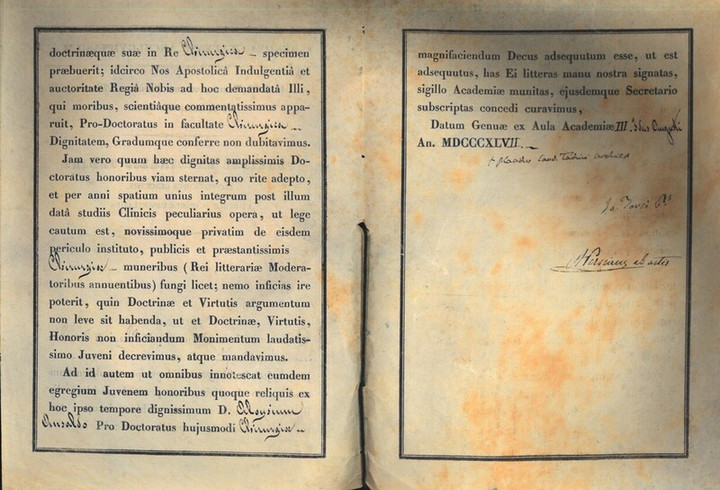 doctrinæquæ suæ in Re Chirurgica – specimen
præbuerit; idcirco Nos Apostolicâ Indulgentiâ et
auctoritate Regiâ Nobis ad hoc demandatâ Illi,
qui moribus, scientiâque commentatissimus appa-
ruit, Pro-Doctoratus in facultate Chirurgica –
Dignitatem, Gradumque conferre non dubitavimus.
Jam vero quum hæc dignitas amplissimis Do-
ctoratus honoribus viam sternat, quo rite adepto,
et per anni spatium unius integrum post illum
datâ studiis Clinicis peculiarius opera, ut lege
cautum est, novissimoque privatim de eisdem
periculo instituto, publicis et præstantissimis
Chirurgiæ – muneribus (Rei litterariæ Modera-
toribus annuentibus) fungi licet; nemo inficias ire
poterit, quin Doctrinæ et Virtutis argumentum
non leve sit habenda, ut et Doctrinæ, Virtutis,
Honoris non inficiandum Monimentum laudatis-
simo Juveni decrevimus, atque mandavimus.
Ad id autem ut omnibus innotescat eumdem
egregium Juvenem honoribus quoque reliquis ex
hoc ipso tempore dignissimum D. Aloysium
Ansaldo Pro Doctoratus hujusmodi Chirurgiæ –
magnifaciendum Decus adsequutum esse, ut est
adsequutus, has Ei litteras manu nostra signatas,
sigillo Academiæ munitas, ejusdemque Secretario
subscriptas concedi curavimus,
Datum Genuæ ex Aula Academiæ III Idus Augusti
An. MDCCCXLVII. –